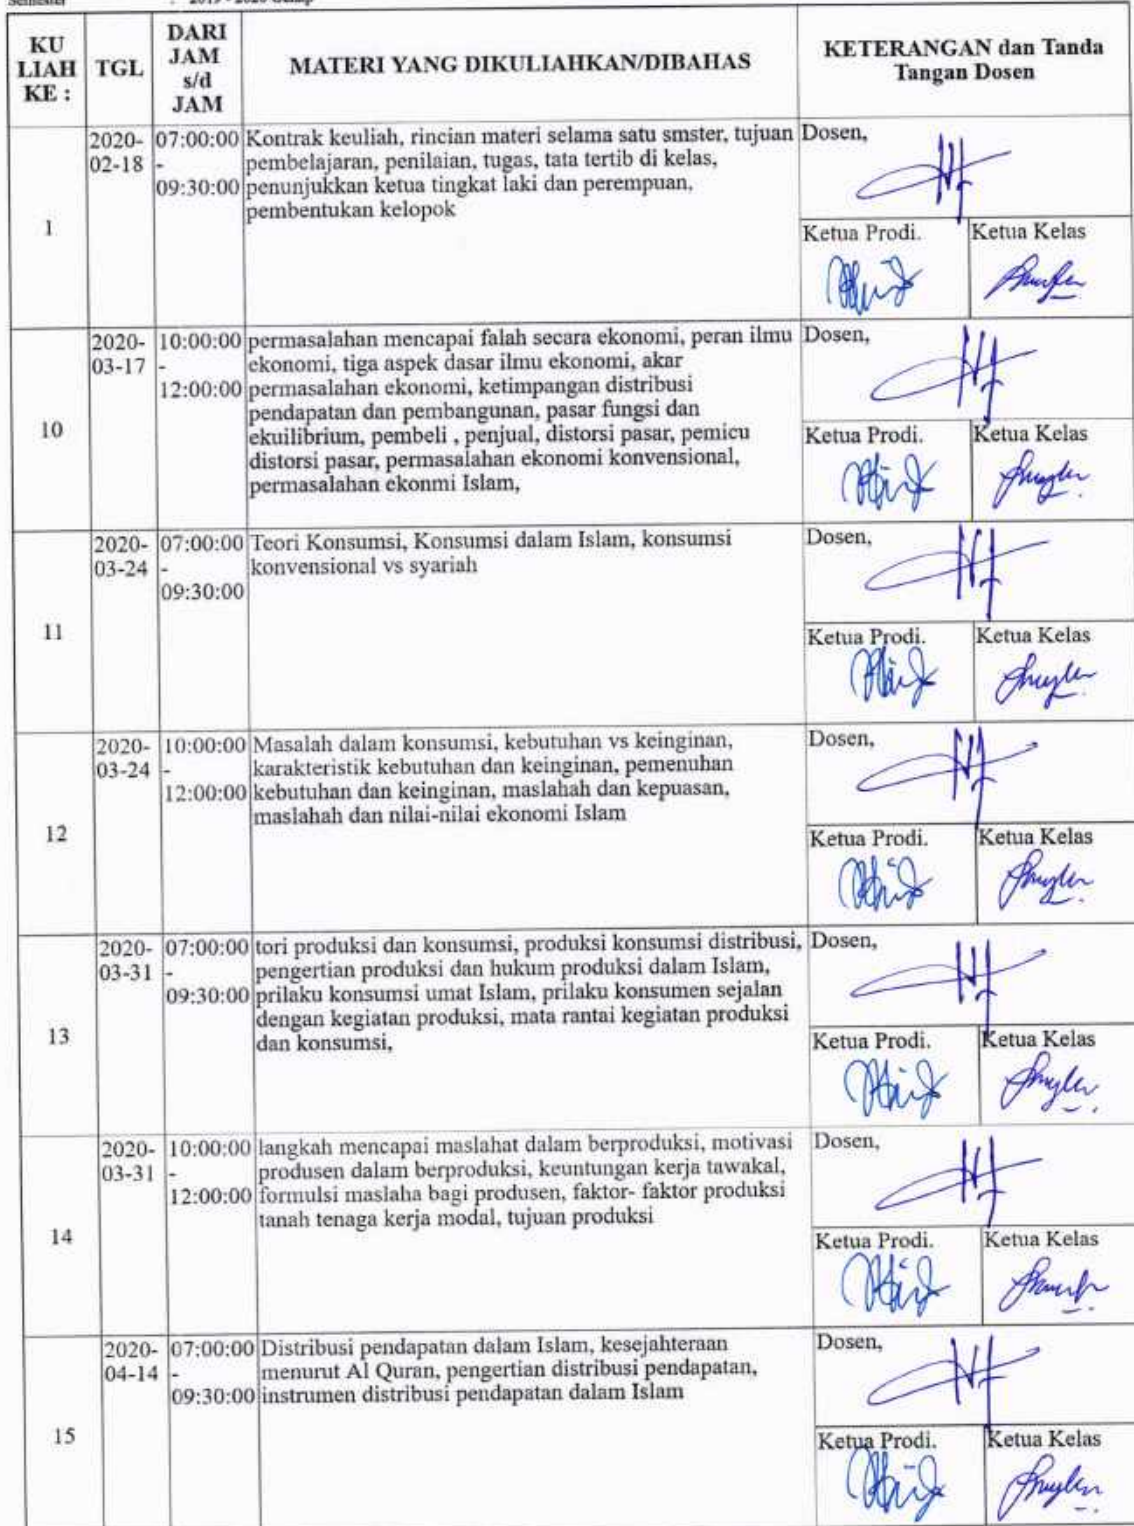 Semester : 2019 - 2020 Genap
KU LIAH KE :
TGL
DARI JAM s/d JAM
MATERI YANG DIKULIAHKAN/DIBAHAS
KETERANGAN dan Tanda Tangan Dosen
1
2020-02-18
07:00:00 - 09:30:00
Kontrak keuliah, rincian materi selama satu smster, tujuan
pembelajaran, penilaian, tugas, tata tertib di kelas,
penunjukkan ketua tingkat laki dan perempuan,
pembentukan kelopok
Dosen,
Ketua Prodi.
Ketua Kelas
10
2020-03-17
10:00:00 - 12:00:00
permasalahan mencapai falah secara ekonomi, peran ilmu
ekonomi, tiga aspek dasar ilmu ekonomi, akar
permasalahan ekonomi, ketimpangan distribusi
pendapatan dan pembangunan, pasar fungsi dan
ekuilibrium, pembeli , penjual, distorsi pasar, pemicu
distorsi pasar, permasalahan ekonomi konvensional,
permasalahan ekonmi Islam,
Dosen,
Ketua Prodi.
Ketua Kelas
11
2020-03-24
07:00:00 - 09:30:00
Teori Konsumsi, Konsumsi dalam Islam, konsumsi
konvensional vs syariah
Dosen,
Ketua Prodi.
Ketua Kelas
12
2020-03-24
10:00:00 - 12:00:00
Masalah dalam konsumsi, kebutuhan vs keinginan,
karakteristik kebutuhan dan keinginan, pemenuhan
kebutuhan dan keinginan, maslahah dan kepuasan,
maslahah dan nilai-nilai ekonomi Islam
Dosen,
Ketua Prodi.
Ketua Kelas
13
2020-03-31
07:00:00 - 09:30:00
tori produksi dan konsumsi, produksi konsumsi distribusi,
pengertian produksi dan hukum produksi dalam Islam,
prilaku konsumsi umat Islam, prilaku konsumen sejalan
dengan kegiatan produksi, mata rantai kegiatan produksi
dan konsumsi,
Dosen,
Ketua Prodi.
Ketua Kelas
14
2020-03-31
10:00:00 - 12:00:00
langkah mencapai maslahat dalam berproduksi, motivasi
produsen dalam berproduksi, keuntungan kerja tawakal,
formulsi maslaha bagi produsen, faktor- faktor produksi
tanah tenaga kerja modal, tujuan produksi
Dosen,
Ketua Prodi.
Ketua Kelas
15
2020-04-14
07:00:00 - 09:30:00
Distribusi pendapatan dalam Islam, kesejahteraan
menurut Al Quran, pengertian distribusi pendapatan,
instrumen distribusi pendapatan dalam Islam
Dosen,
Ketua Prodi.
Ketua Kelas